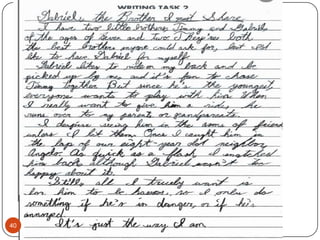 WRITING TASK 2
Gabriel, the Brother I most Share
I have two little brothers, Timmy and Gabriel
of the ages of seven and two. They're both
the best brothers anyone could ask for, but I'd
like to have Gabriel for myself.
Gabriel likes to ride on my back and be
picked up by me, and it's fun to chase
Timmy together. But since he's the youngest,
everyone wants to play with him. When
I really want to give him a ride, he
runs over to my parents or grandparents.
I despise seeing him in the arms of friends
unless I let them. Once I caught him in
the lap of our eight-year old neighbor,
Angela. As quick as a flash, I snatched
him back although Gabriel wasn't too
happy about it.
Still, all I truly want is
for him to be happy, so I only do
something if he's in danger, or if he's
annoyed.
It's just the way I am
40